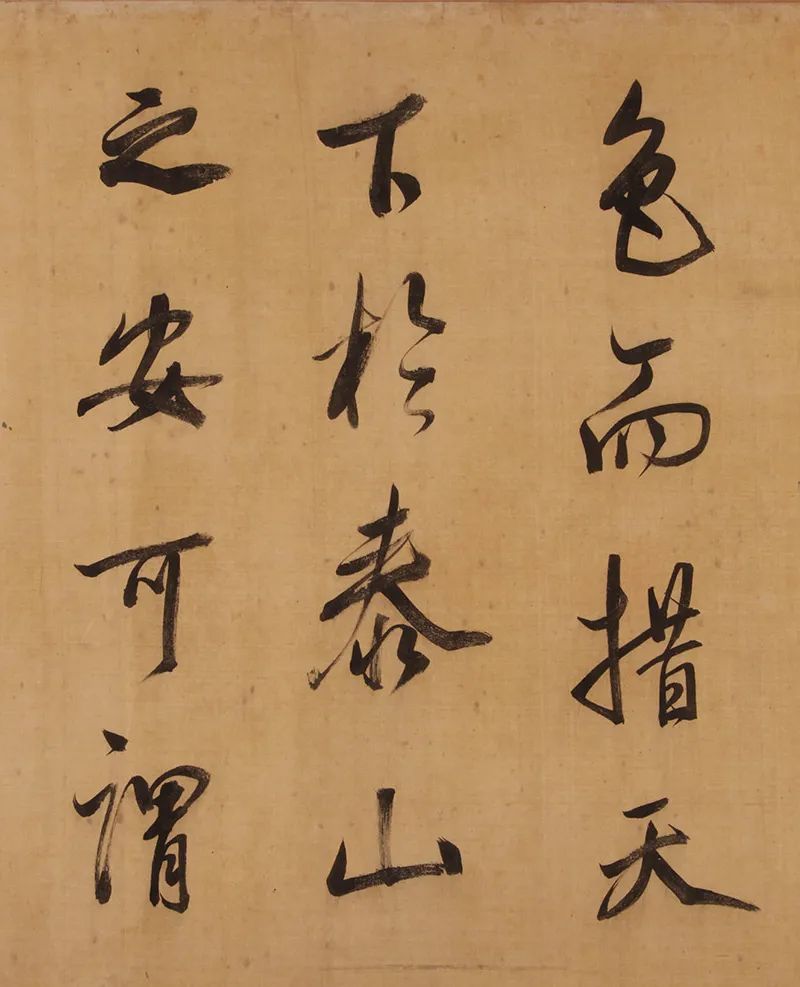 色而措天
下於泰山
之安可謂